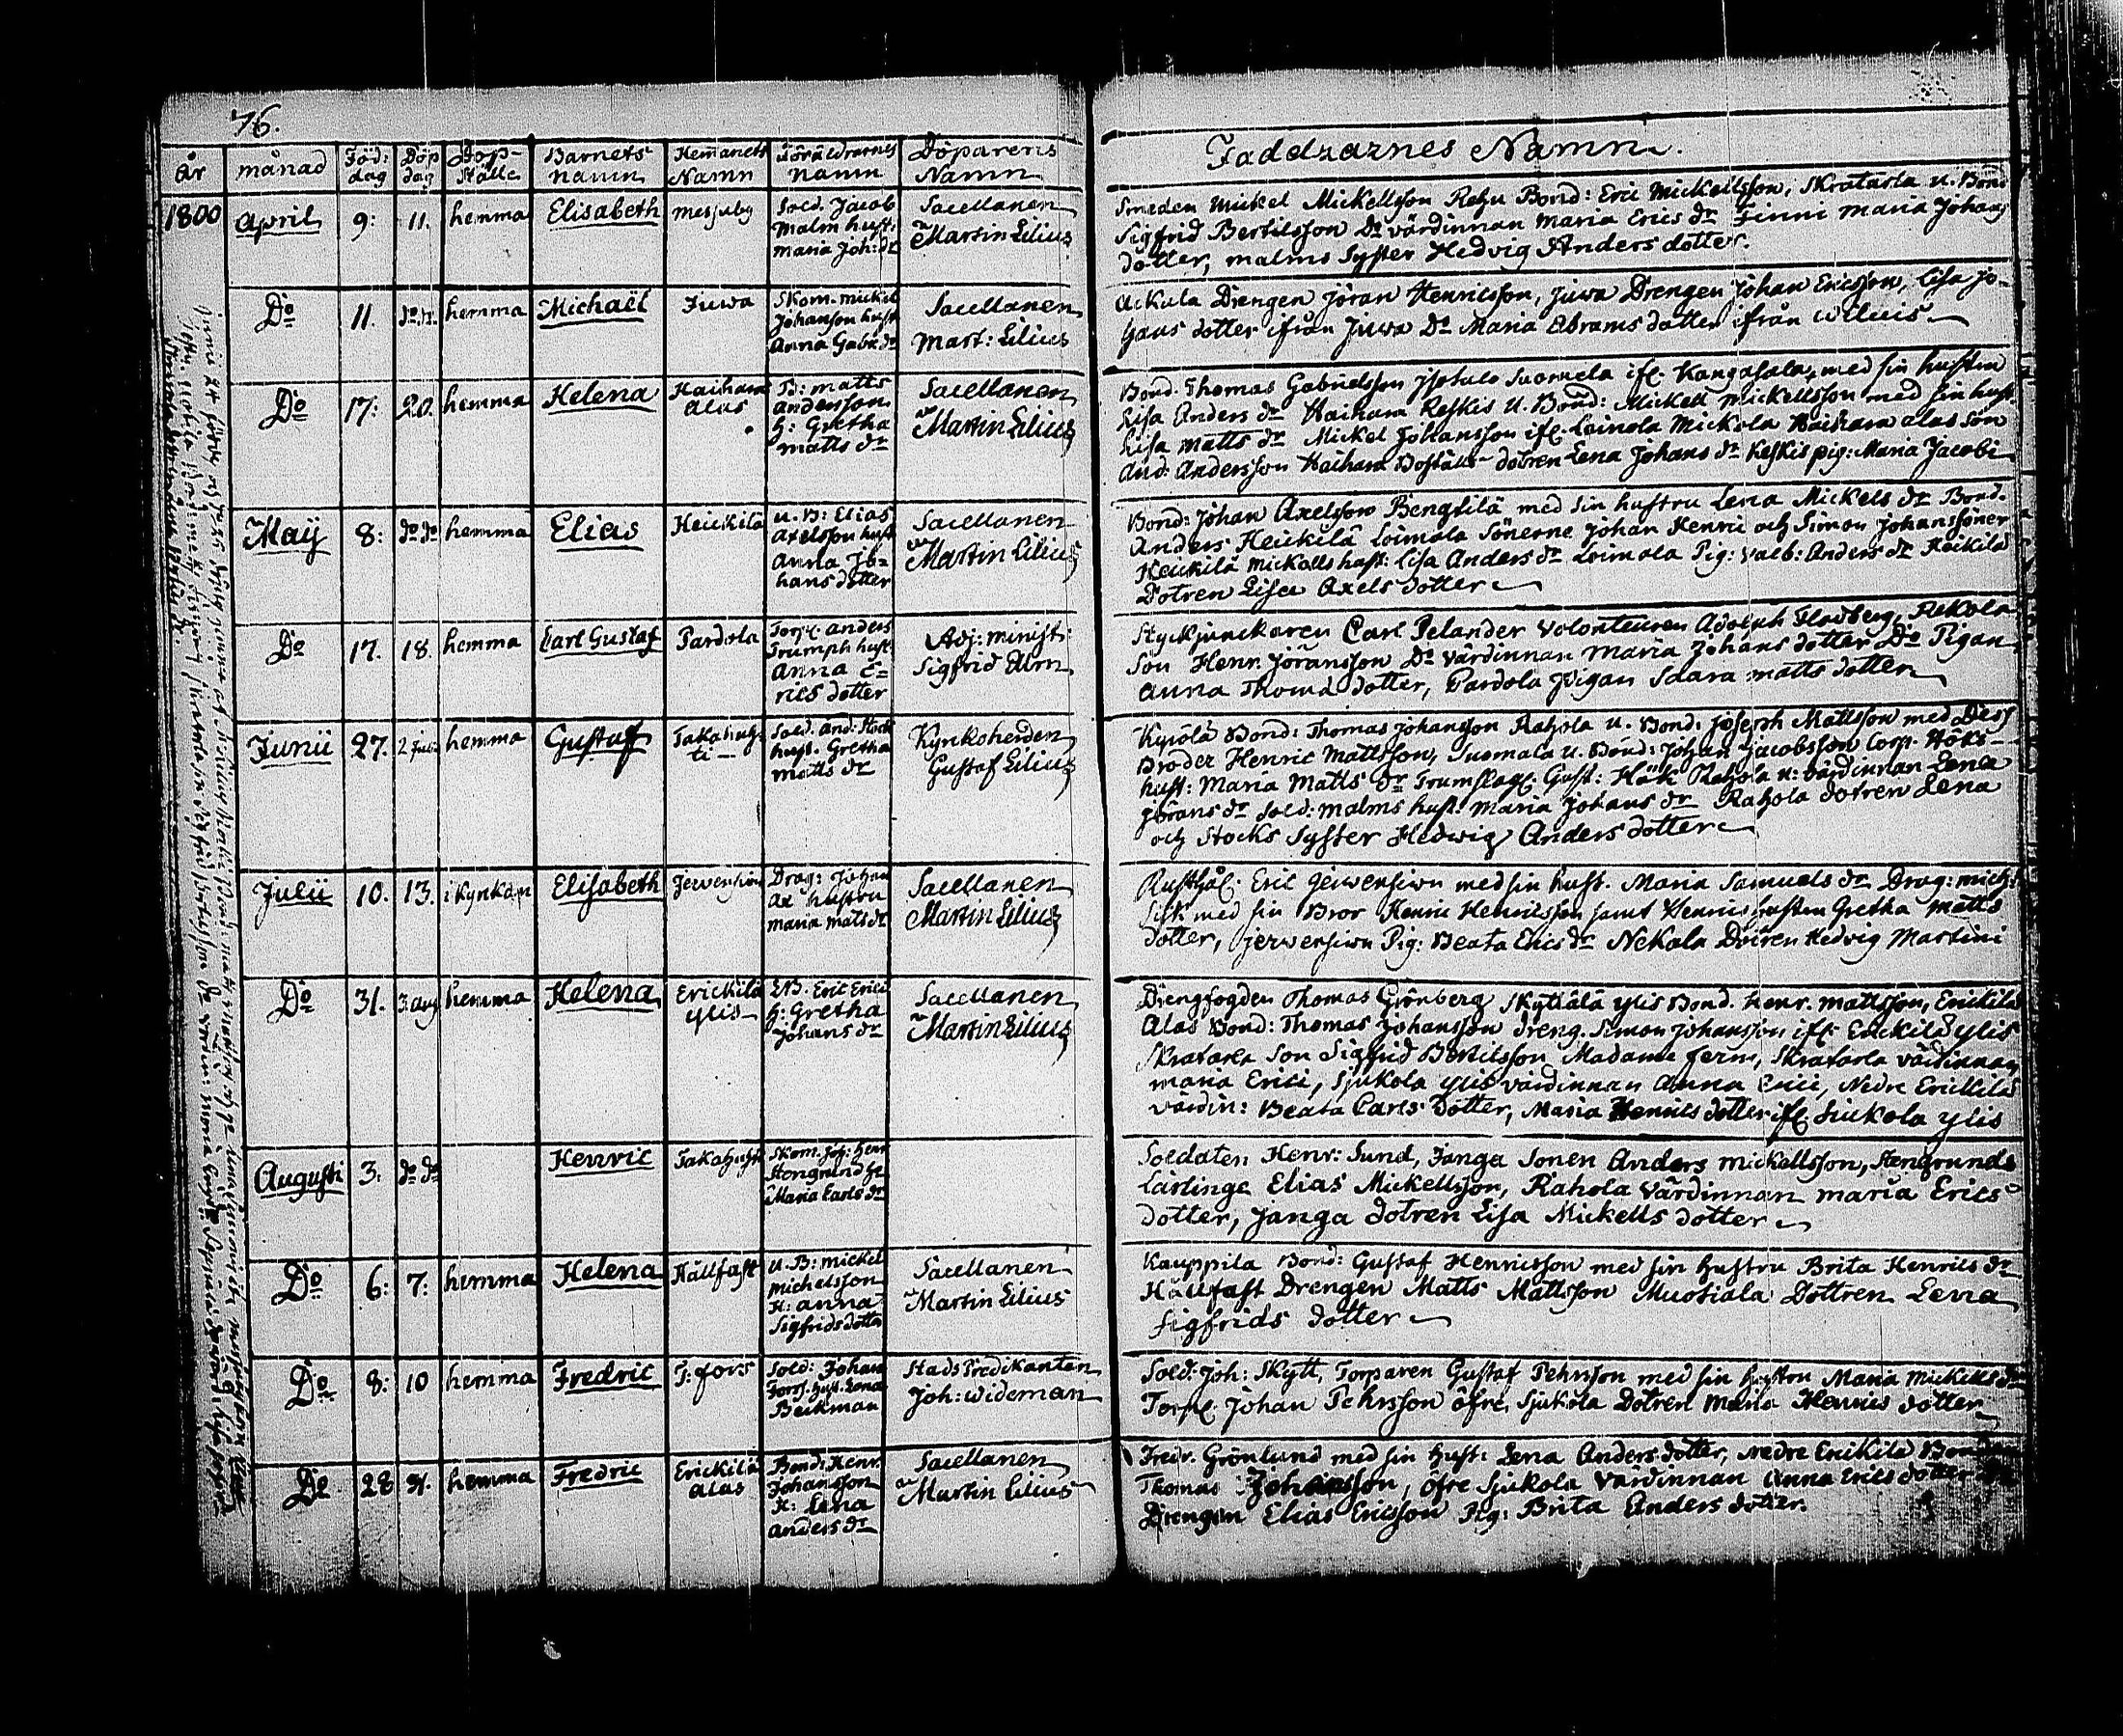 76.
År månad Föd: dag Döp dag Döp- Ställe Barnets namn Hem̄anets Namn Föräldrarnes namn Döparens Namn
1800 April 9: 11. hemma Elisabeth Mesjuby
Sold. Jacob
Malm hust:
Maria Joh: dr
Sacellanen
Martin Lilius
Do 11. do do hemma Michaël Juwa
Skom. Mickel
Johanson hust
Anna Gabr. dr
Sacellanen
Mart: Lilius
Do 17: 20. hemma Helena Haihara Alas
B: Matts
Andersson
h: Gretha
Matts dr
Sacellanen
Martin Lilius
Maij 8: do do hemma Elias Heickilä
U. B: Elias
Axelsson hust
Anna Jo=
hans dotter
Sacellanen
Martin Lilius
Do 17. 18. hemma Carl Gustaf Pardola
Torp: Anders
Trumph hust
Anna E=
rics dotter
Adj: minist:
Sigfrid Elm
Junii 27. hemma Gustaf Takahuh= ti
Sold. And. Stock
hust. Gretha
Matts dr
Kyrkoherden
Gustaf Lilius
Julii 10. 13. i Kyrkan Elisabeth
Drag: Johan
Ax hustru
Maria Matts dr
Sacellanen
Martin Lilius
Do 31. 3 aug hemma Helena Erickilä ylis
B. Eric Erici
h: Gretha
Johans dr
Sacellanen
Martin Lilius
Augusti 3. do do Henric Takahuhti
Skom. Joh: Henr
Stengrund h:
Maria Carls dr
Do 6: 7: hemma Helena Hällfast
U. B: Mickel
Michelsson
H: Anna
Sigfrids dotter
Sacellanen
Martin Lilius
Do 8: 10 hemma Fredric T: fors
Sold: Johan
Forss. hust. Lena
Beckman
Stads Predikanten
Joh: Wideman
Do 28 31. hemma Fredric Erickilä Alas
Bond: Henr.
Johansson
H: Lena
Anders dr
Sacellanen
Martin Lilius
Faddrarnes Namn.
Smeden Mickel Mickellsson Rehu Bond: Eric Mickellsson, Skratarla u. Bond
Sigfrid Bertilsson Do värdinnan Maria Erics dr Finni Maria Johans
dotter, Malms Syster Hedvig Anders dotter.
Ackula Drengen Jöran Henricsson, Juwa Drengen Johan Ericsson, Lisa Jo-
hans dotter ifrån Juwa Do Maria Abrams dotter ifrån
Bond: Thomas Gabrielsson Isotalo Suomela ifr: Kangasala, med sin hustru
Lisa Anders dr Haihara Keskis U. Bond: Mickell Mickellsson med sin hust.
Lisa Matts dr Mickel Johansson ifr: Leinola Mickola Haihara alas son
And: Andersson Haihara Boställs dotren Lena Johans dr Keskis pig: Maria Jacobi
Bond: Johan Axelsson Bengtilä med sin hustru Lena Mickels dr Bond.
Anders Heickilä Loimala Sönerne Johan Henric och Simon Johanssöner
Heickilä Mickells hust: Lisa Anders dr Loimala Pig: Valb: Anders dr Heickilä
Dotren Lisa Axels dotter
Styckjunckaren Carl Pelander Volonteuren Adolph Flodberg, Nekola
Son Henr. Jöransson Do värdinnan Maria Johans dotter Do Pigan
Anna Thomæ dotter, Pardola Pigan Sara Matts dotter
Kyrölä Bond: Thomas Johansson Rahola u. Bond: Joseph Mattsson med Dess
Broder Henric Mattsson, Suomala u. Bond: Johan Jacobsson Corp. Höks
hust: Maria Matts dr Trumslag: Gust: Hök Rahola u: värdinnan Lena
Jörans dr Sold: Malms hust. Maria Johans dr Rahola dotren Lena
och Stocks Syster Hedwig Anders dotter
Rusthål: Eric Jerwensiwu med sin hust. Maria Samuels dr Drag: Mich:
med sin Bror Henric Henricsson samt Henrics hustru Gretha Matts
dotter, Jerwensiwu Pig: Beata Erics dr Nekala Dotren Hedvig Martini
Drengfogden Thomas Grönberg Skyttälä ylis Bond. Henr. Mattsson, Erickilä
Alas Bond: Thomas Johansson dreng. Simon Johansson ifr: Erickilä ylis
Skratarla Son Sigfrid Bertilsson Madame Ferm, Skratarla värdinnan
Maria Erici, Sjukola ylis värdinnan Anna Erici, Nedre Erickilä
värdin: Beata Carls dotter, Maria Henrics dotter ifr: Siukola ylis
Soldaten Henr: Sund, Janga Sonen Anders Mickellsson, Stengrunds
Lärlinge Elias Mickellsson, Rahola värdinnan Maria Erics
dotter, Janga dotren Lisa Mickells dotter
Kauppila Bond: Gustaf Henricsson med sin hustru Brita Henrics dr
Hällfast Drengen Matts Mattsson Muotiala Dottren Lena
Sigfrids dotter
Sold: Joh: Skytt, Torparen Gustaf Pehrsson med sin hustru Maria Mickells dr
Torp: Johan Pehrsson öfre Sjukola Dotren Maria Henrics dotter
Fredr. Grönlund med sin hust: Lena Anders dotter, Nedre Erickilä Bonden
Thomas Johansson, öfre Sjukola Värdinnan Anna Erics dotter
Drengen Elias Ericsson Pig: Brita Anders dotter.